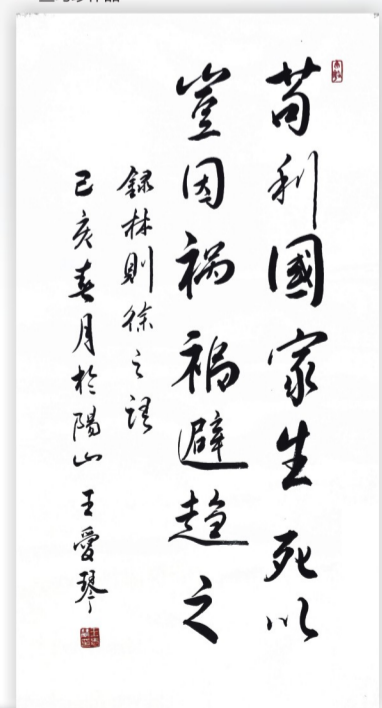 苟利國家生死以
豈因祸禍避趋之
録林則徐之語
己亥春月於陽山 王愛琴